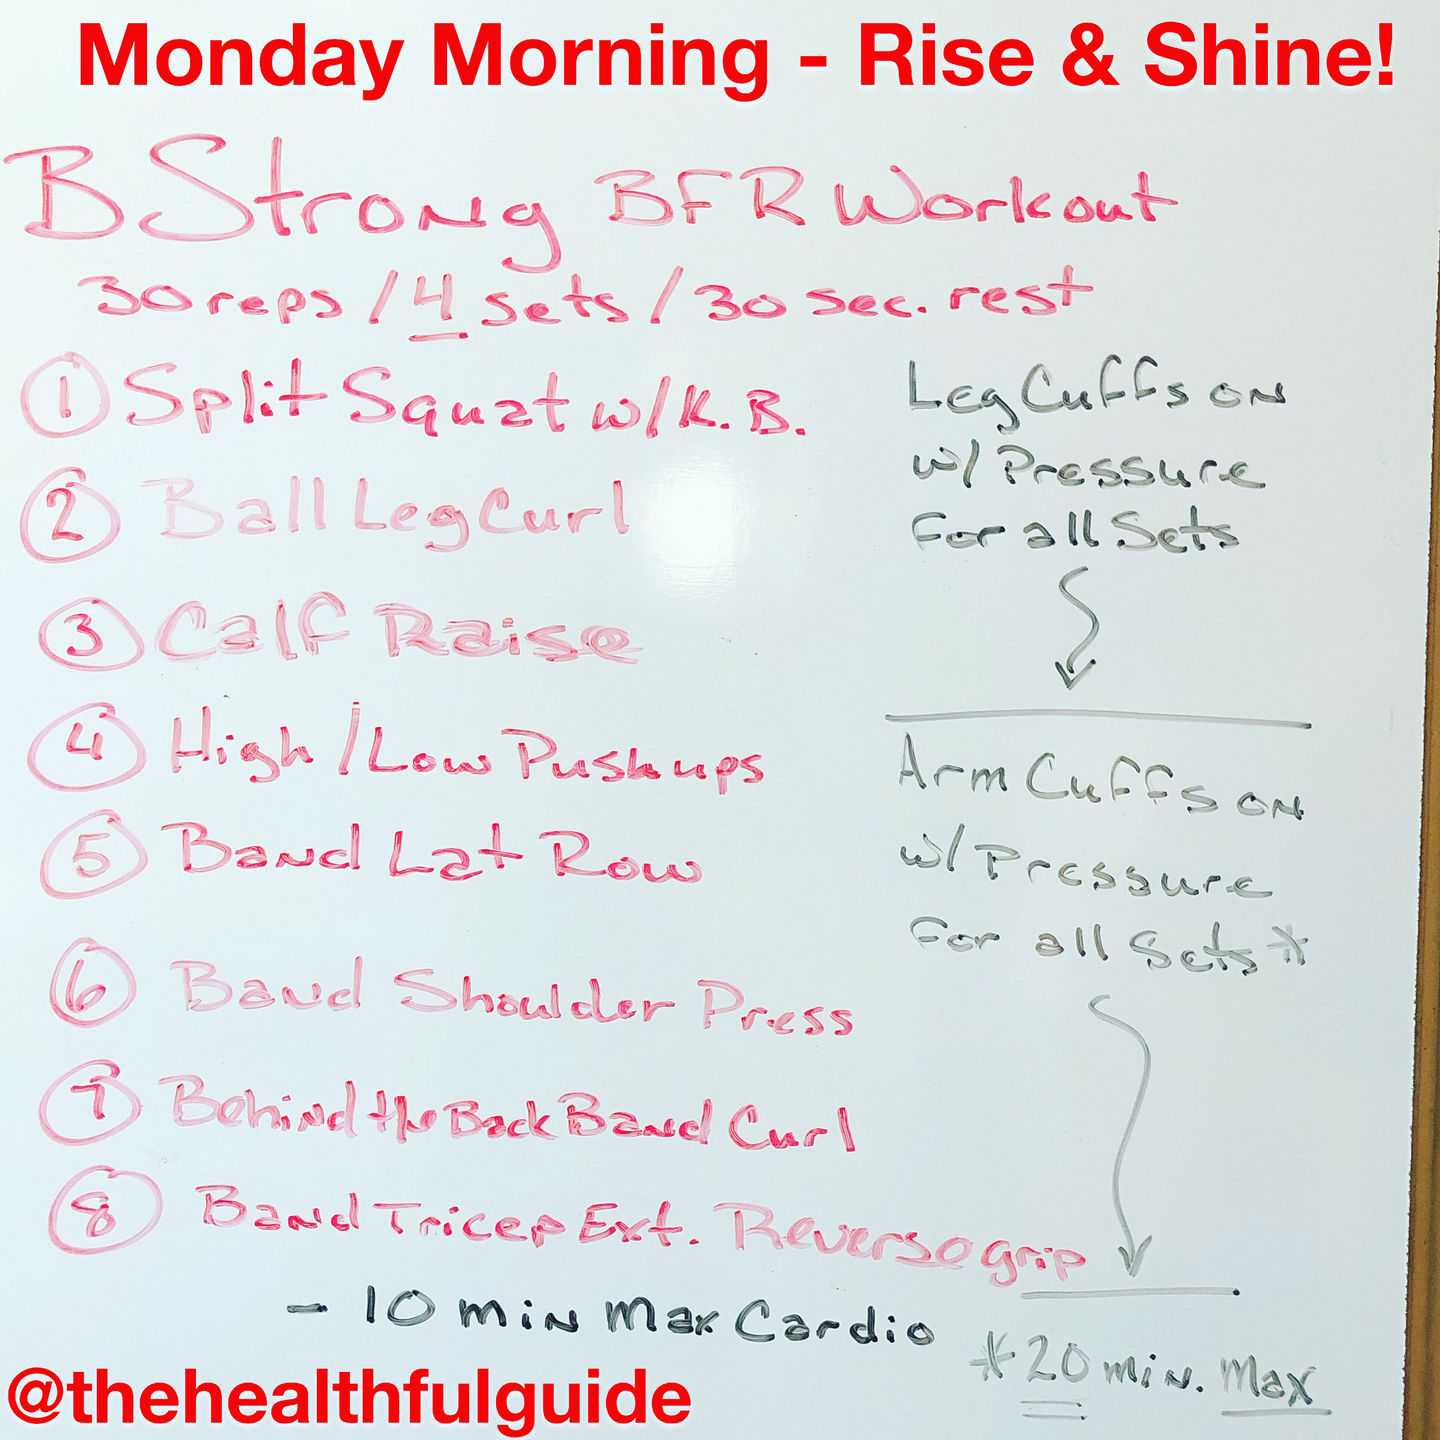 Monday Morning - Rise & Shine!
B Strong BFR Workout
30 reps / 4 sets / 30 sec. rest
1 Split Squat w/ K.B.
2 Ball Leg Curl
3 Calf Raise
4 High / Low Pushups
5 Band Lat Row
6 Band Shoulder Press
7 Behind the Back Band Curl
8 Band Tricep Ext. Reverse grip
- 10 min Max Cardio
Leg Cuffs on
w/ Pressure
for all Sets
Arm Cuffs on
w/ Pressure
for all Sets *
* 20 min. Max
@thehealthfulguide